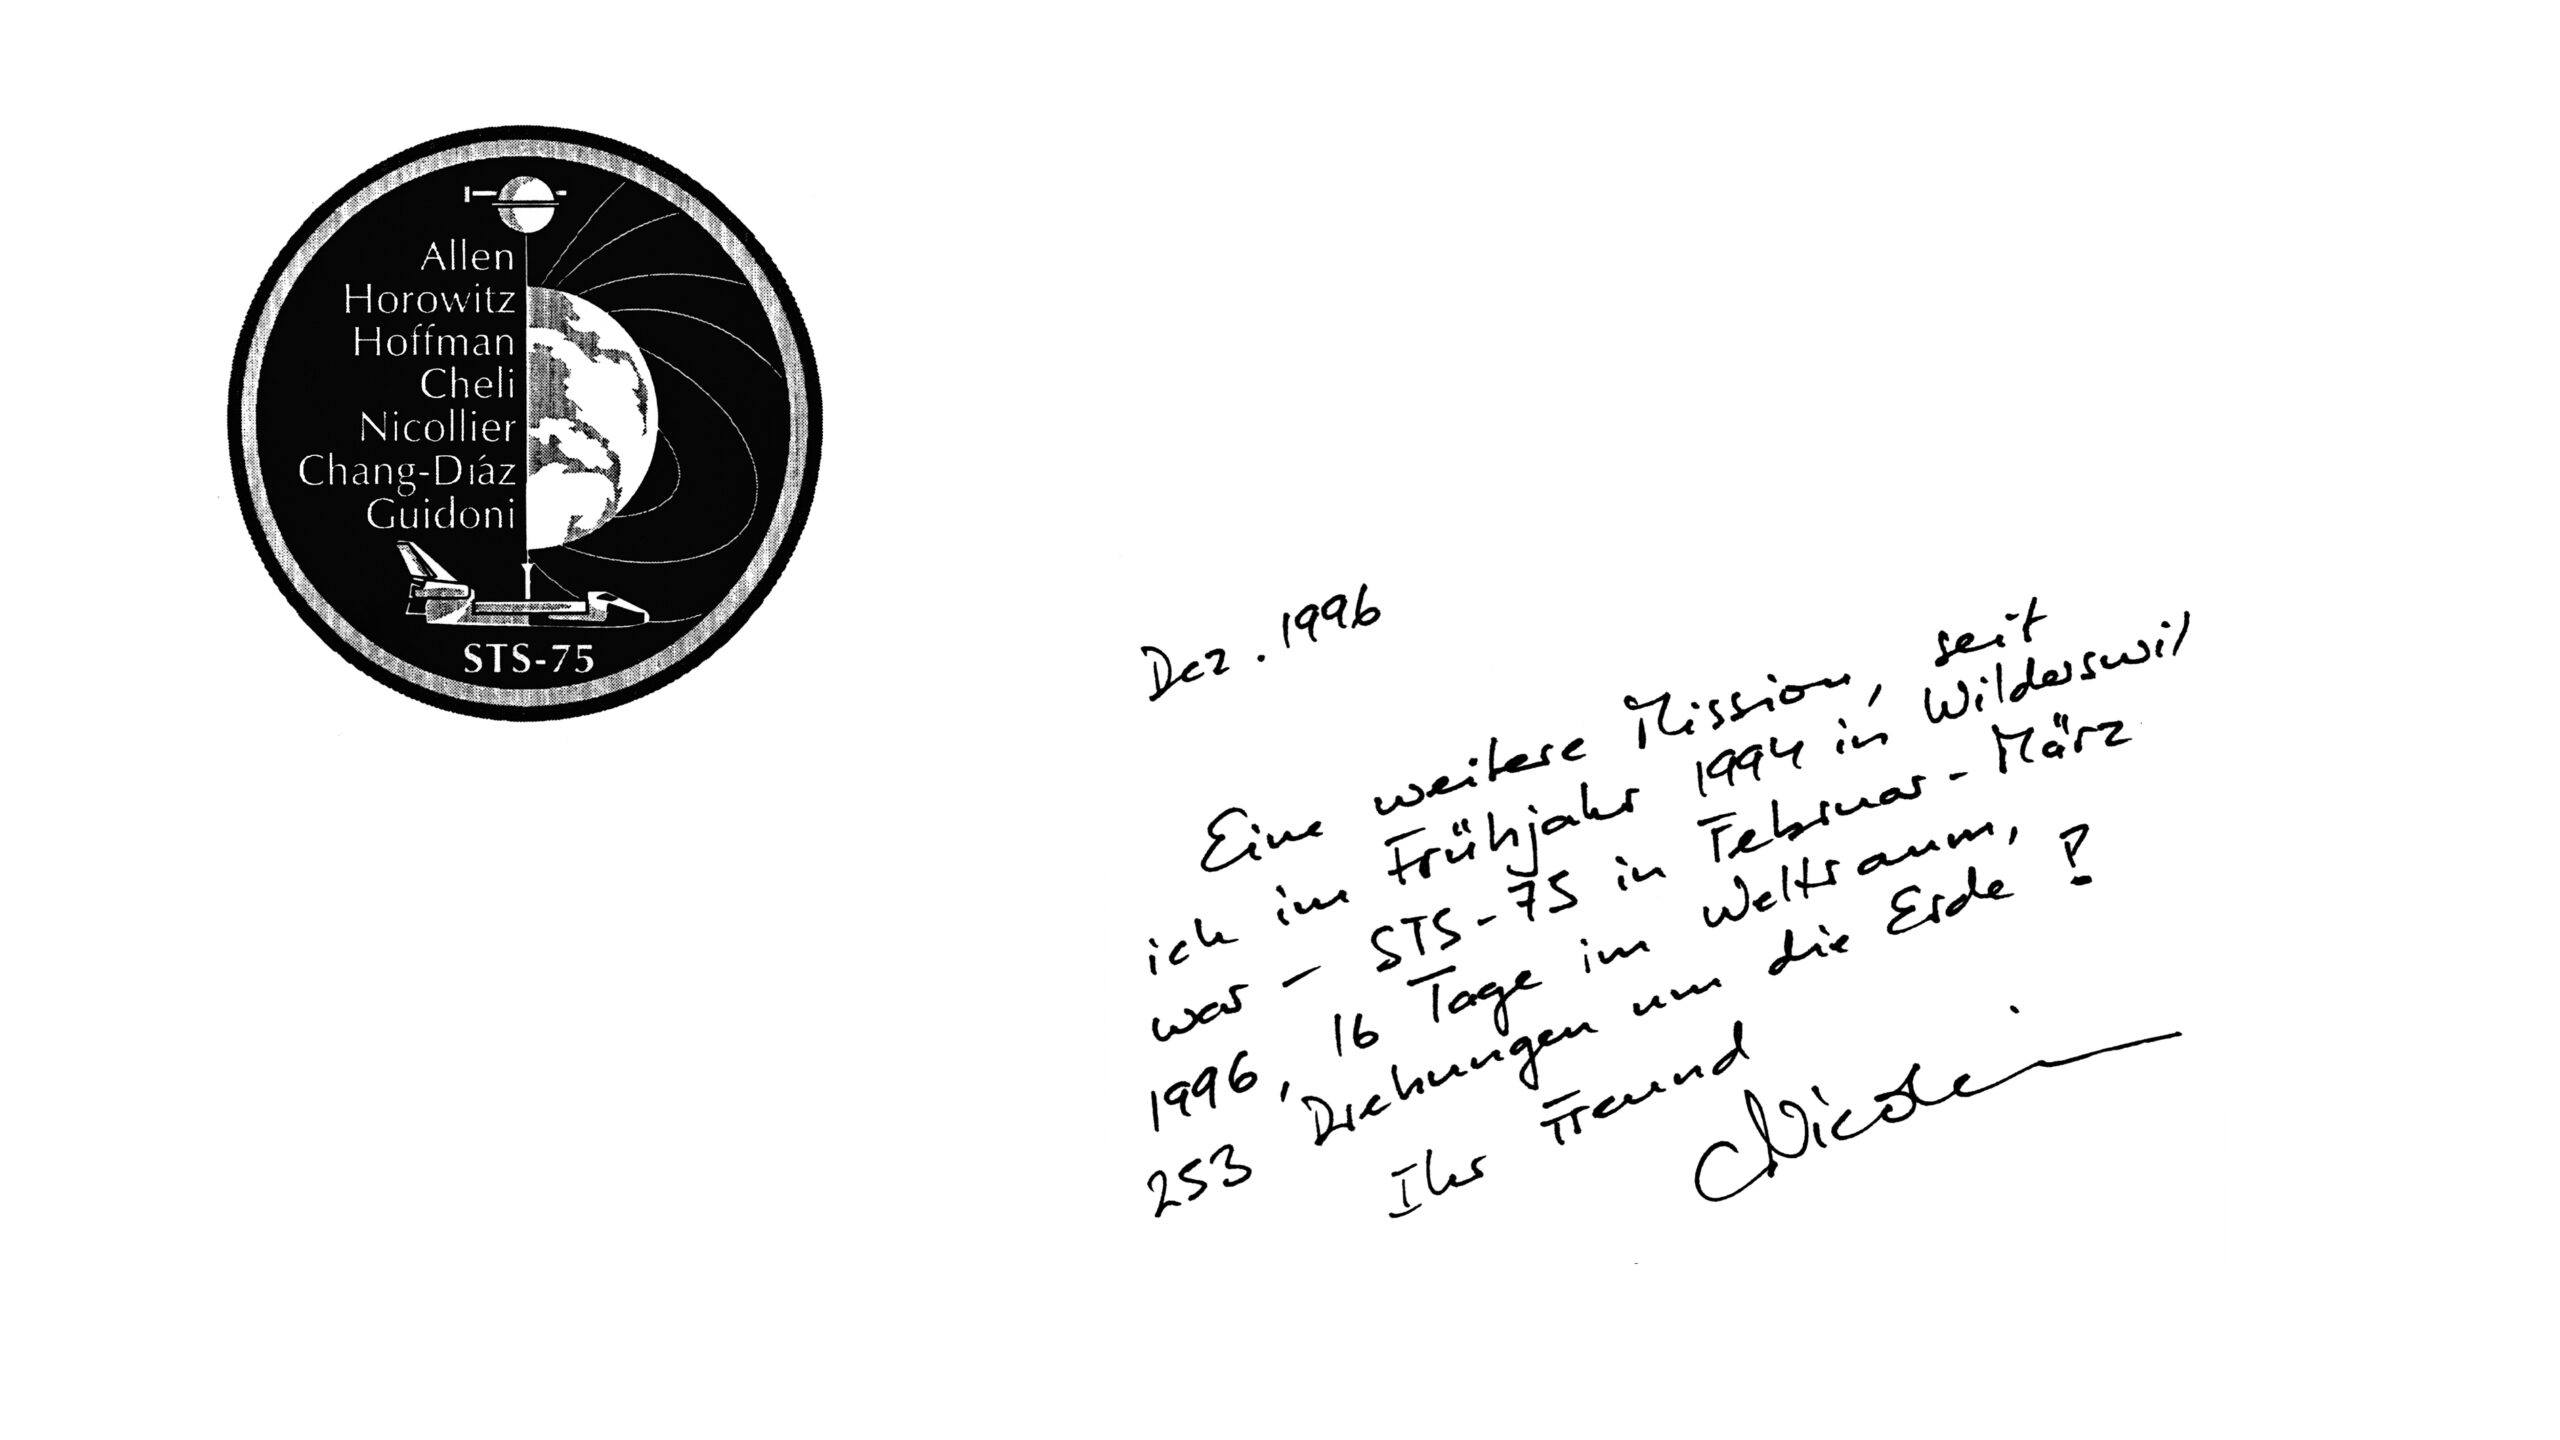 Allen
Horowitz
Hoffman
Cheli
Nicollier
Chang-Díáz
Guidoni
STS-75
Dez. 1996
Eine weitere Mission, seit
ich im Frühjahr 1994 in Wilderswil
war – STS-75 in Februar - März
1996, 16 Tage im Weltraum,
253 Drehungen um die Erde !
Ihr Freund